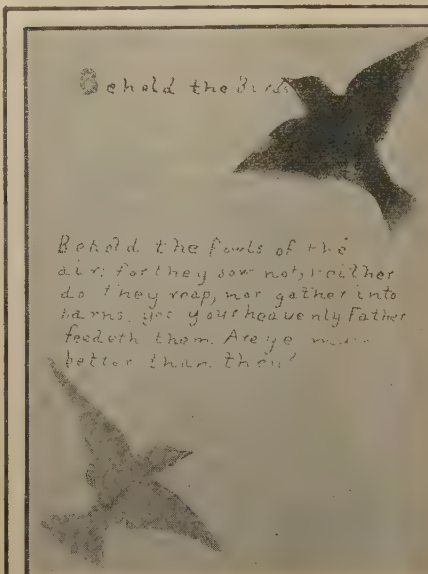 Behold the Birds
Behold the fowls of the
air; for they sow not, neither
do they reap, nor gather into
barns. yet your heavenly Father
feedeth them. Are ye
better than they?